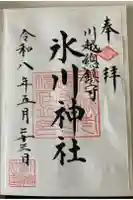 奉拝
川越總鎮守
氷川神社
令和八年五月二十三日